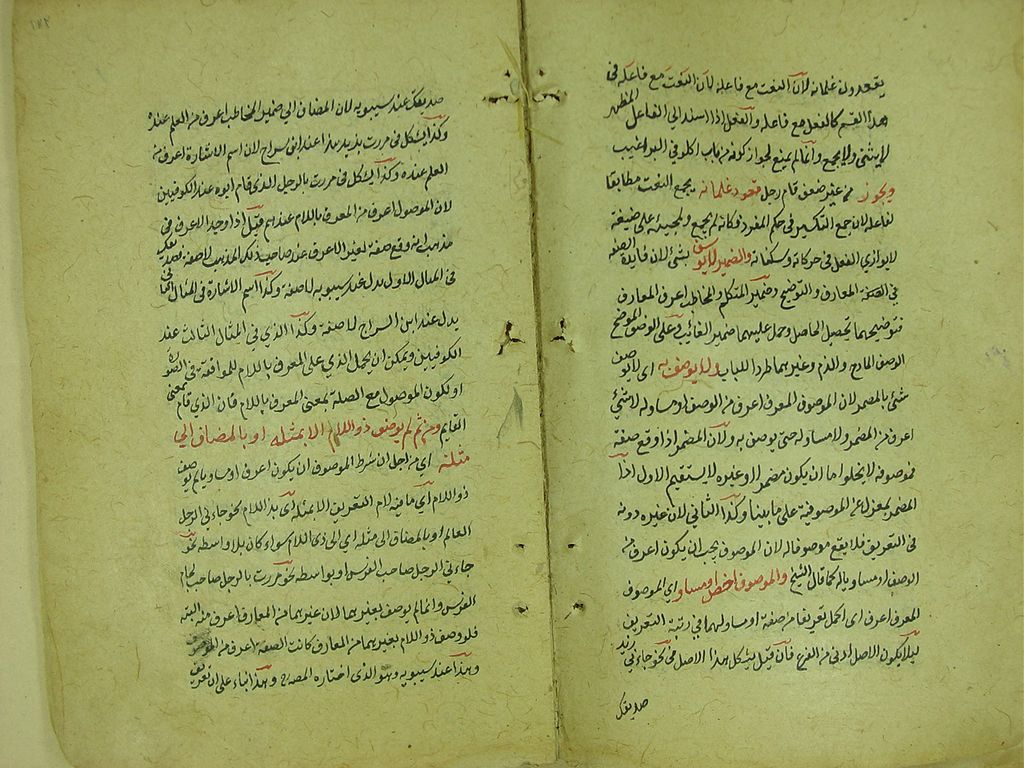 يقعدون غلمانه لان النعت مع فاعله لان النعت مع فاعله في
هذا القسم كالفعل مع فاعله والفعل اذا اسند الى الفاعل المظهر
لا يثنى ولا يجمع وانما لم يمنع لجواز كونه من باب اكلوني البراغيث
ويجوز من غير ضعف قام رجل قعود غلمانه بجمع النعت مطابقا
لفاعله لان جمع التكسير في حكم المفرد فكانه لم يجمع ولمجيئه على صيغة
لا يوازي الفعل في حركاته وسكناته والضمير لا يوصف بشئ لان فايدة الصفة
في المعارف والتوضيح وضمير المتكلم والمخاطب اعرف المعارف
فتوضيحهما تحصيل الحاصل وحمل عليهما ضمير الغائب وعلى الوصف الموضح
الوصف المادح والذم وغيرهما طردا للباب ولا يوصف به اى لا يوصف
شئ بالمضمر لان الموصوف المعرف اعرف من الوصف او مساو له ولا شئ
اعرف من المضمر ولا مساو له حتى يوصف به ولان المضمر اذا وقع صفة
فموصوفه لا يخلوا ما ان يكون مضمرا او غيره لا يستقيم الاول اذا
المضمر بمعزل عن الموصوفية على ما بينا وكذا الثاني لان غيره دونه
في التعريف فلا يقع موصوفا له لان الموصوف يجب ان يكون اعرف من
الوصف او مساويا له كما قال الشيخ والموصوف اخص او مساو اى الموصوف
المعرف اعرف اى اكمل تعريفا من صفته او مساو لها في رتبة التعريف
ليلا يكون الاصل ادنى من الفرع فان قيل يشكل هذا الاصل في نحو جاءني زيد
صديقك
١٨٢
صديقك عند سيبويه لان المضاف الى ضمير المخاطب اعرف من العلم عنده
وكذا يشكل في مررت بزيد هذا عند ابن سراج لان اسم الاشارة اعرف من
العلم عنده وكذا يشكل في مررت بالرجل الذى قام ابوه عند الكوفيين
لان الموصول اعرف من المعرف باللام عندهم قيل اذا وجد الاعرف في
مذهب انه وقع صفة لغير الاعرف عند صاحب ذلك المذهب لا صفة فصديقك
في المثال الاول بدل عند سيبويه لا صفة وكذا اسم الاشارة في المثال الثاني
بدل عند ابن السراج لا صفة وكذا الذي في المثال الثالث عند
الكوفيين ويمكن ان يحمل الذي على المعرف باللام للموافقة في الصورة
او لكون الموصول مع الصلة بمعنى المعرف باللام فان الذي قام بمعنى
القايم ومن ثم لم يوصف ذو اللام الا بمثله او بالمضاف الى
مثله اى من اجل ان شرط الموصوف ان يكون اعرف او مساويا لم يوصف
ذو اللام اى ما فيه لام التعريف الا بمثله اى بذ اللام نحو جاءني الرجل
العالم او بالمضاف الى مثله اى الى ذى اللام سواء كان بلا واسطه نحو
جاءني الرجل صاحب الفرس او بواسطه نحو مررت بالرجل صاحب لجام
الفرس وانما لم يوصف بغيرهما لان غيرهما من المعارف اعرف منه البته
فلو وصف ذو اللام بغيرهما من المعارف كانت الصفة اعرف من الموصوف
وهذا عند سيبويه وهو الذى اختاره المصـ وهذا بناء على ان تعريف